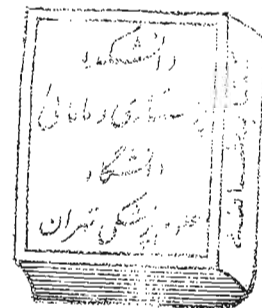 دانشکده
پرستاری و مامائی
دانشگاه
علوم پزشکی تهران